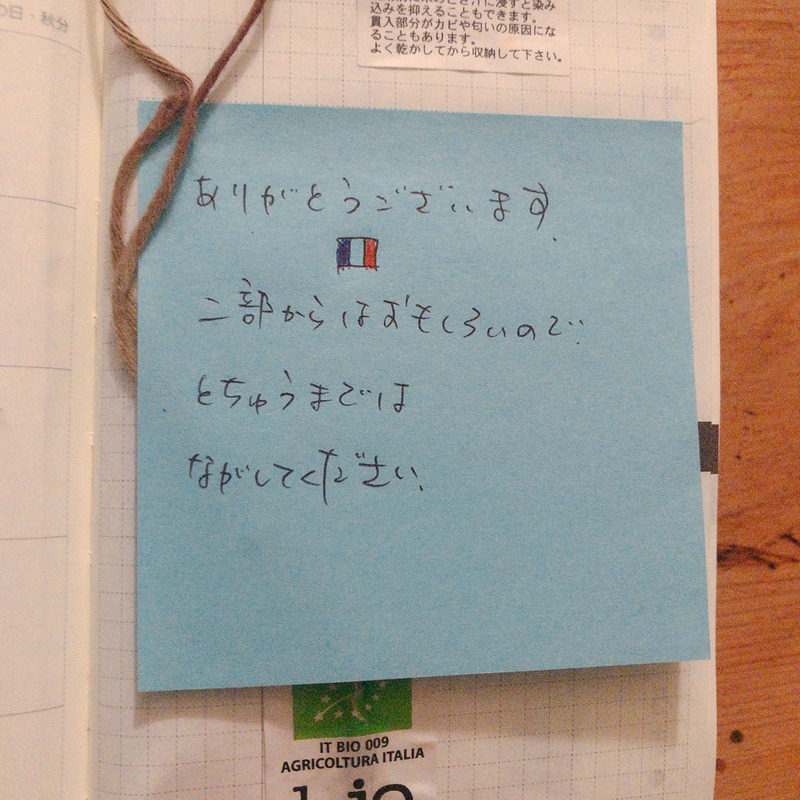 の日・秋分
込みを抑えることもできます。
貫入部分がカビや匂いの原因にな
ることもあります。
よく乾かしてから収納して下さい。
ありがとうございます.
二部からはおもしろいので.
とちゅうまでは
ながしてください.
IT BIO 009
AGRICOLTURA ITALIA